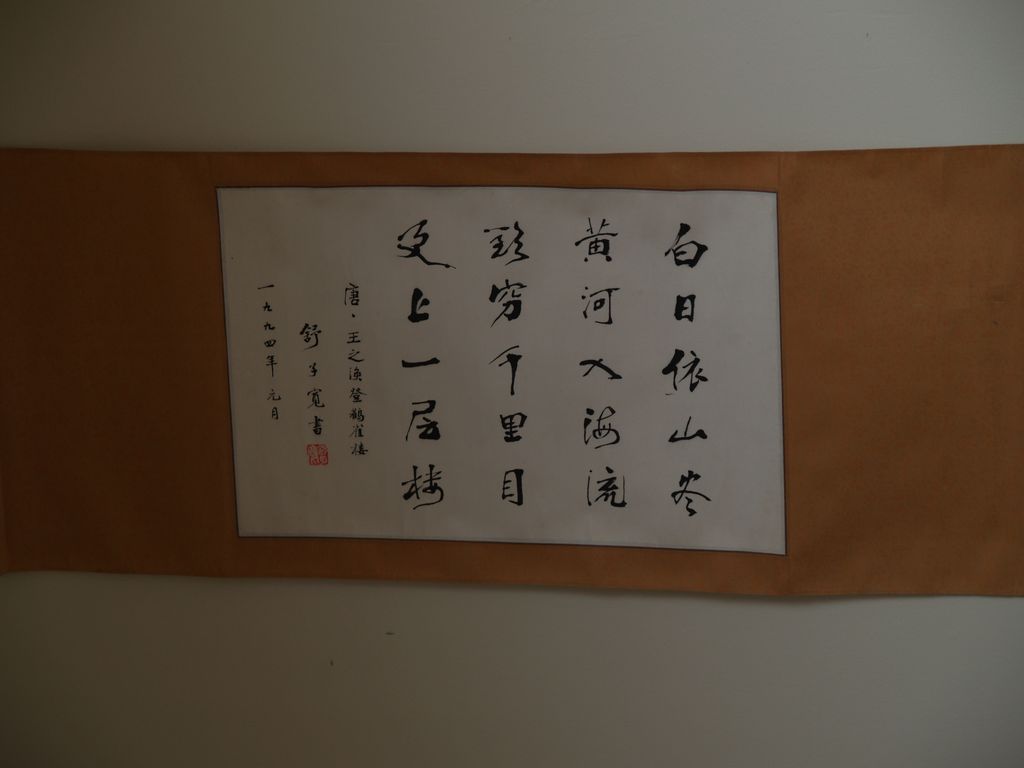 白日依山尽
黄河入海流
欲穷千里目
更上一层楼
唐、王之涣登鹳雀楼
舒子宽书
一九九四年元月